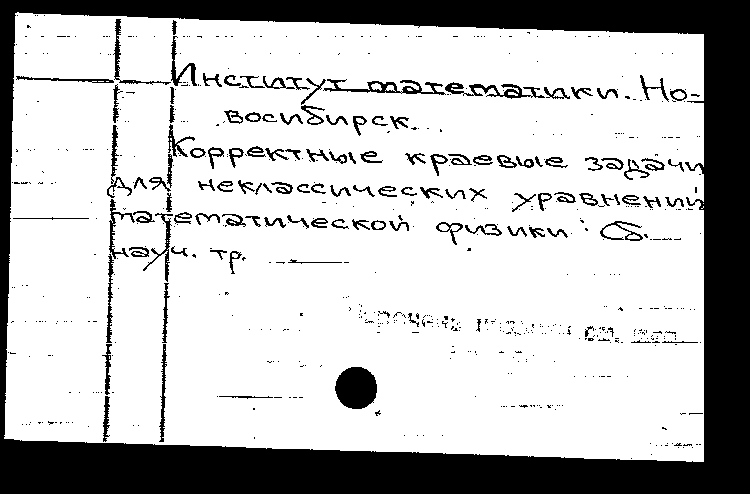 Институт математики. Но-
восибирск.
Корректные краевые задачи
для неклассических уравнений
математической физики : Сб.
науч. тр.
см.